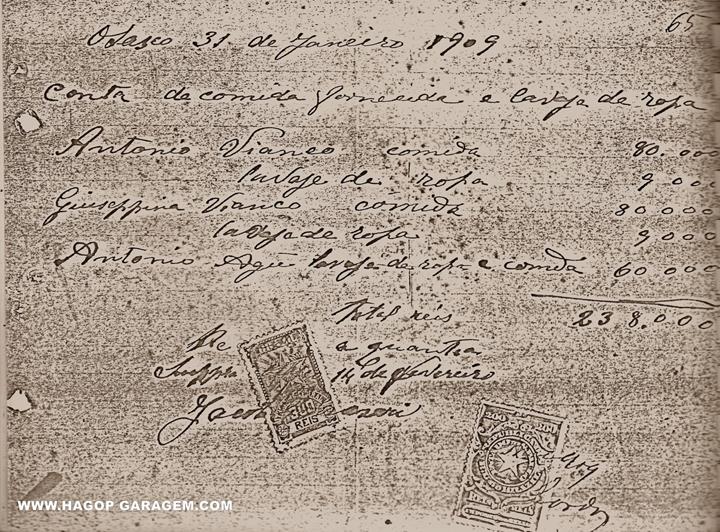 65
Osasco 31 de Janeiro 1909
Conta de comida fornecida e lavaje de ropa
Antonio Vianco comida 80.000
lavaje de ropa 9000
Giuseppina Vianco comida 80000
lavaje de ropa 9000
Antonio Agù lavaje de ropa e comida 60000
total réis 238.000
Re a quantia
14 de fevereiro
300
REIS
WWW.HAGOP GARAGEM.COM